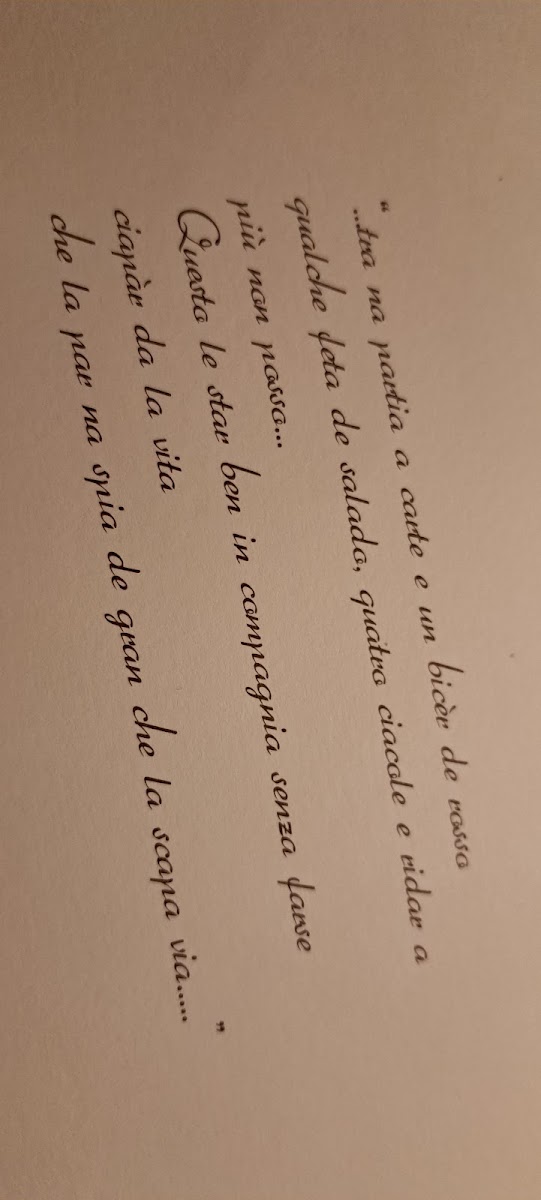 “...tra na partia a carte e un bicèr de rosso
qualche feta de salado, quatro ciacole e ridar a
più non posso...
Questo le star ben in compagnia senza farse
ciapàr da la vita
che la par na spia de gran che la scapa via..... ”